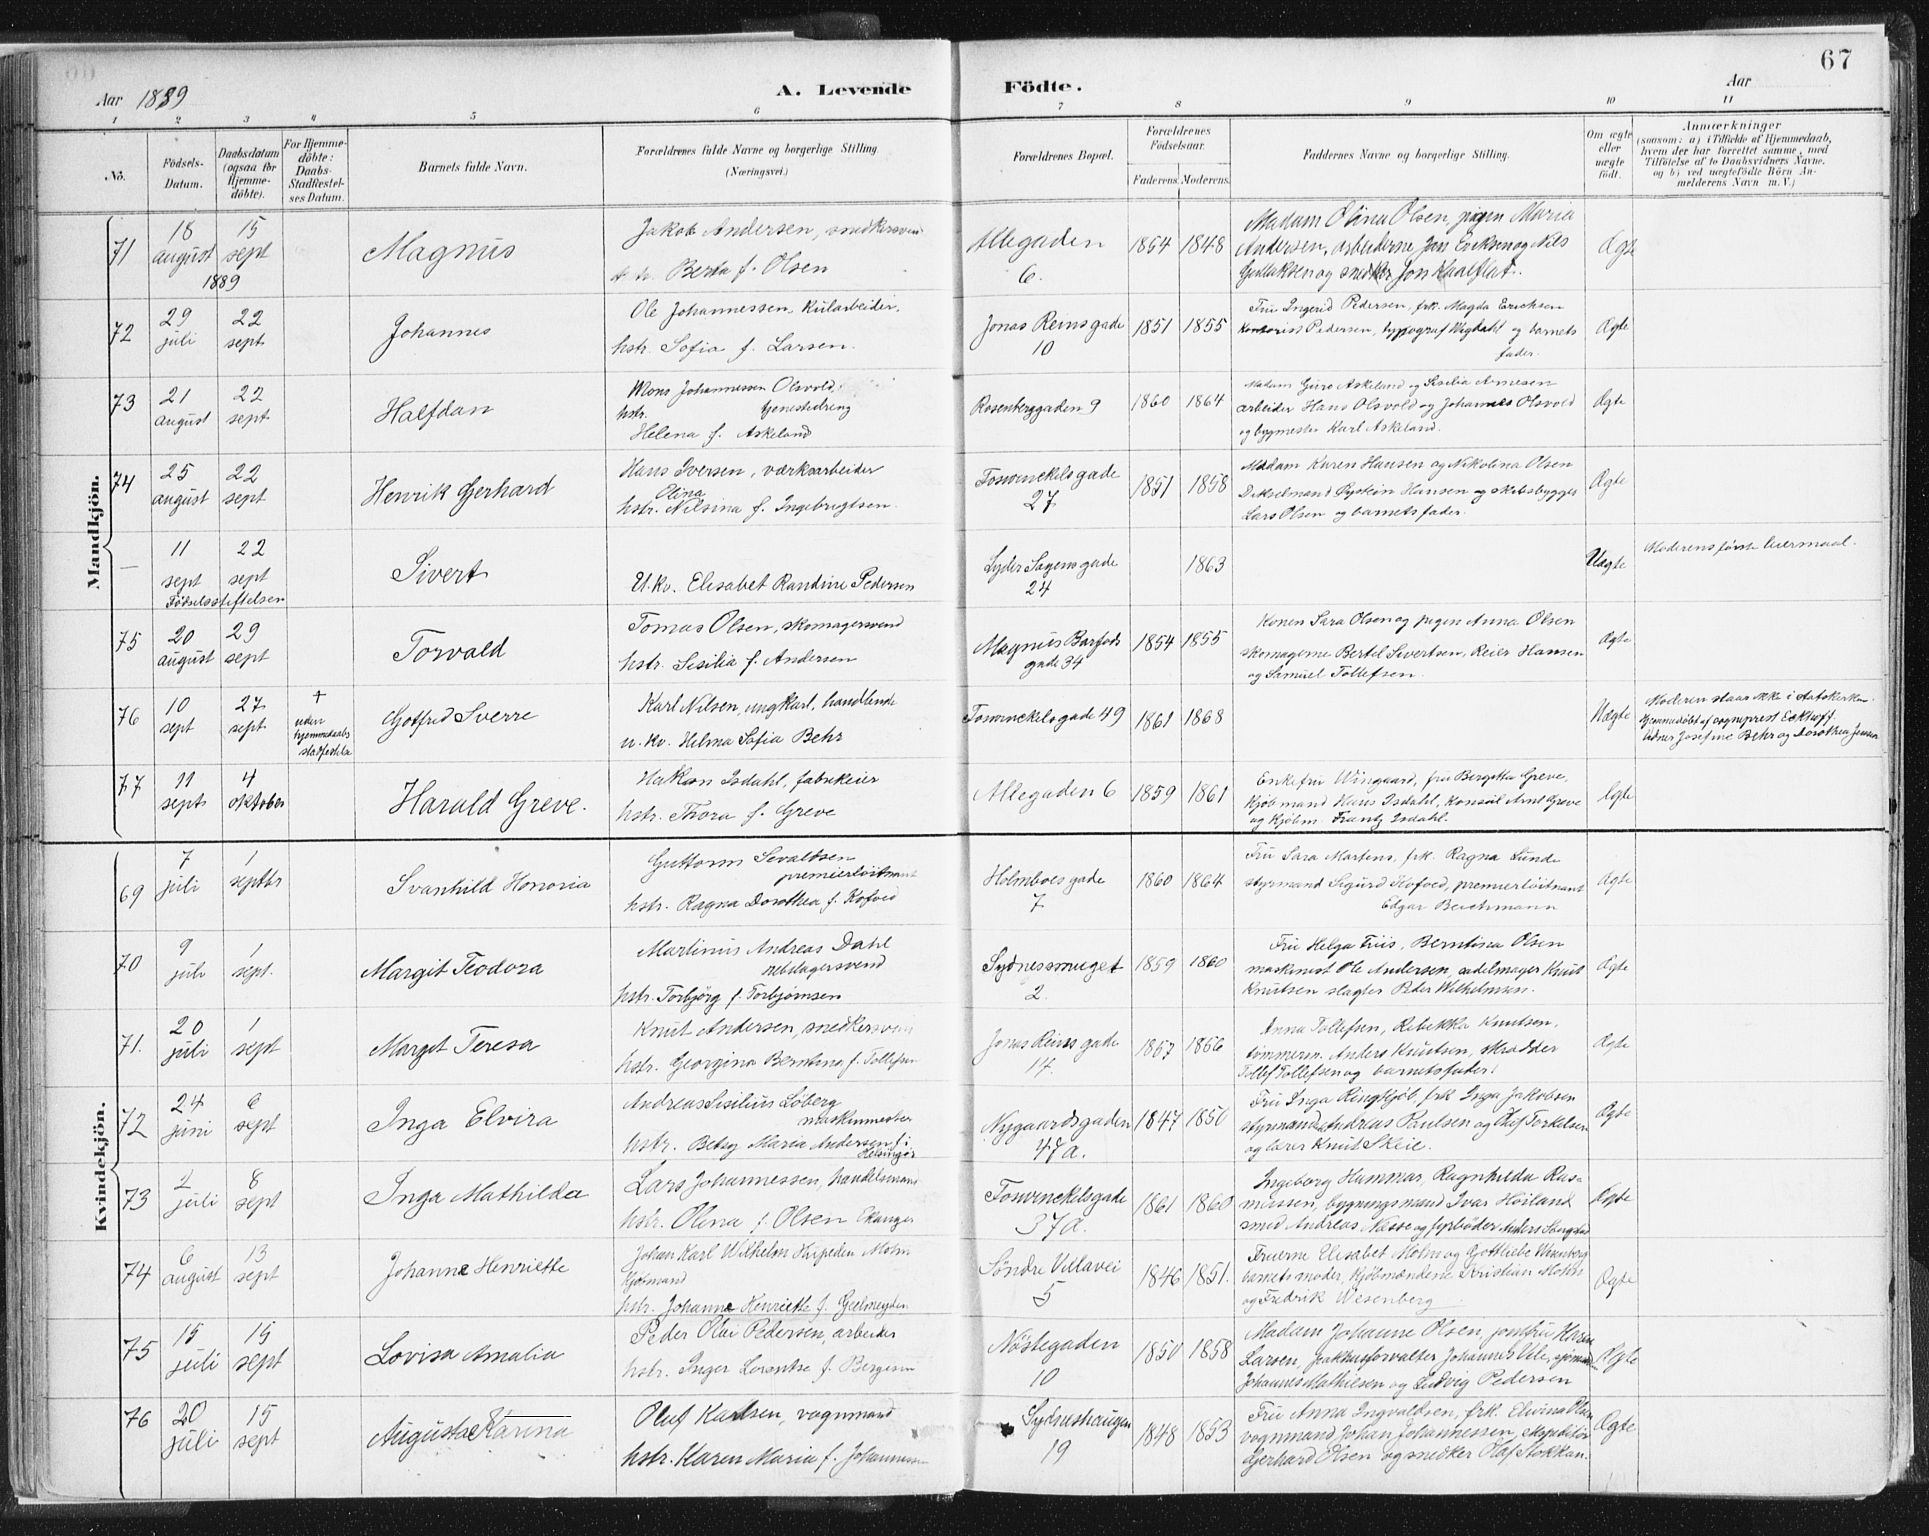 67
Aar 1889
A. Levende
Födte.
Aar
1 2 3 4 5 6 7 8 9 10 11
No.
Födsels-
Datum.
Daabsdatum
(ogsaa för
Hjemme-
döbte).
For Hjemme-
döbte:
Daabs-
Stadfæstel-
ses Datum.
Barnets fulde Navn.
Forældrenes fulde Navne og borgerlige Stilling
(Næringsvei.)
Forældrenes Bopæl.
Forældrenes
Födselsaar.
Faderens. Moderens.
Faddernes Navne og borgerlige Stilling.
Om ægte
eller
uægte
födt.
Anmærkninger
(saasom: a) i Tilfælde af Hjemmedaab,
hvem der har forrettet samme, med
Tilföielse af to Daabsvidners Navne.
og b) ved uægtefödte Börn An-
melderens Navn m. V.)
Mandkjön.
71 18 august 1889 15 sept Magnus
Jakob Andersen, snedkersvend
Berta f. Olsen
Allegaden 6. 1854 1848
Madam Olina Olsen, pigen Maria
Andersen, arbeiderne Jan Eriksen og Nils
Gullaksen og snedker Jon
Ægte
72 29 juli 22 sept Johannes
Ole Johannessen, kularbeider.
hstr. Sofia f. Larsen.
Jonas Reinsgade 10 1851 1855
Fru Ingerid Pedersen, frk. Magda Erichsen
kontorist Pedersen, typograf Wigdahl og barnets
fader.
Ægte
73 21 august 22 sept Halfdan
Mons Johannessen Olsvold,
hstr. tjenestedreng
Helena f. Askeland
Rosenberggaden 9 1860 1864
Madam Guro Askeland og Sesilia Arnesen
arbeider Hans Olsvold og Johannes Olsvold
og bygmester Karl Askeland.
Ægte
74 25 august 22 sept Henrik Gerhard
Hans Iversen, værksarbeider
Olina
hstr. Nilsina f. Ingebrigtsen.
Tosvinckelsgade 27 1851 1858
Madam Karen Hansen og Nikolina Olsen
Dekselmand Øystein Hansen og skibsbygger
Lars Olsen og barnets fader.
Ægte
— 11 sept 22 sept Sivert
Fødselsstiftelsen
U.kv. Elisabet Randine Pedersen
Lyder Sagens gade 24 1863
Uægte
Moderens første leiermaal.
75 20 august 29 sept Torvald
Tomas Olsen, skomagersvend
hstr. Sesilia f. Andersen
Magnus Barfods gade 34 1854 1855
Konen Sara Olsen og pigen Anna Olsen
skomagerne Bertel Sivertsen, Reier Hansen
og Samuel Tollefsen.
Ægte
76 10 sept 27 sept + uden hjemmedaabs stadfestelse Gotfred Sverre
Karl Nilsen, ungkarl, handlende
u. kv. Helma Sofia Behr
Tosvinckelsgade 49 1861 1868
Uægte
Moderen staar ikke i statskirken
Hjemmedøbt af sogneprest Eckhoff
Vidner Josefine Behr og Dorothea Jensen
77 11 septs 4 oktober Harald Greve.
Hakon Isdahl, fabrikeier
hstr. Thora f. Greve
Allegaden 6 1859 1861
Enkefru Wingaard, fru Bergitta Greve,
kjøbmand Hans Isdahl, konsul Arnt Greve
og kjøbm. Frantz Isdahl.
Ægte
Kvindekjön.
69 7 juli 1 septbr Svanhild Honoria
Guttorm Sevaldsen
premierløitnant
hstr. Ragna Dorothea f. Kofoed
Holmboes gade 7 1860 1864
Fru Sara Martens, frk. Ragna Lunde
styrmand Sigurd Kofoed, premierløitnant
Edgar Beichmann
Ægte
70 9 juli 1 sept. Margit Teodora
Martinus Andreas Dahl
rebslagersvend
hstr. Torbjørg f. Torbjørnsen
Sydnessmuget 2. 1859 1860
Fru Helga Friis, Berntina Olsen
maskinist Ole Andersen, sadelmager Knut
Knutsen slagter Peder Wilhelmsen.
Ægte
71. 20 juli 1 sept Margit Teresa
Knut Andersen, snedkersvend
hstr. Georgina Berntina f. Tollefsen
Jonas Reins gade 14. 1857 1866
Anna Tollefsen, Rebekka Knutsen,
tømmerm. Anders Knutsen, skrædder
Tollef Tollefsen og barnets fader.
Ægte
72 24 juni 6 sept Inga Elvira
Andreas Sisilius Løberg
maskinmester
hstr. Betsy Maria Andersen f. i
Helsingør
Nygaardsgaden 47a. 1847 1850
Fru Inga Ringkjøb, frk Inga Jakobsen
styrmand Andreas Paulsen og Olaf Torkelsen
og lærer Knut Skeie.
Ægte
73 2 juli 8 sept Inga Mathilda
Lars Johannessen, handelsmand
hstr. Olena f. Olsen Ekanger
Tosvinckelsgade 37a. 1861 1860
Ingeborg Hammar, Ragnhilda Ras-
mussen, bygningsmand Ivar Høiland
smed Andreas Nesse og fyrbøder Anders
Ægte
74 6 august 13 sept Johanne Henriette
Johan Karl Wilhelm Mohn
kjøbmand
hstr. Johanne Henriette f. Gjelmeyden
Søndre Villavei 5 1846 1851.
Fruerne Elisabet Mohn og Gottliebe Wesenberg
barnets moder, kjøbmændene Kristian Mohn
og Fredrik Wesenberg
Ægte
75 15 juli 15 sept Lovisa Amalia
Peder Olai Pedersen, arbeider
hstr. Inger Lorentse f. Bergesen
Nøstegaden 10 1850 1858
Madam Johanne Olsen, jomfru Karen
Larsen, pakhusforvalter Johannes Vile, sjømand
Johannes Mathiesen og Ludvig Pedersen
Ægte
76 20 juli 15 sept Augusta Karina
Oluf Karlsen, vognmand
hstr. Karen Maria f. Johannessen
Sydneshaugen 19 1848 1853
Fru Anna Ingvaldsen, frk. Elvina Olsen
vognmand Johan Johannessen, ekspeditør
Gjerhard Olsen og snedker Olaf Stokkan.
Ægte